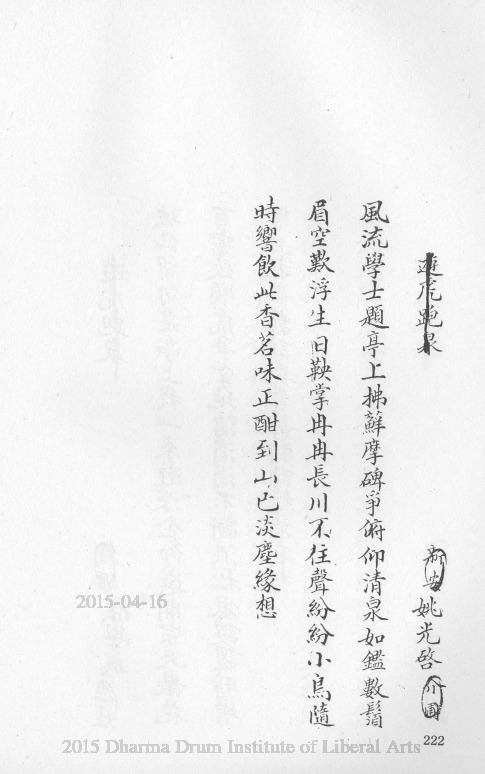 遊虎跑泉
新安姚光啓川甫
風流學士題亭上拂蘚摩碑爭俯仰清泉如鑑數鬚
眉空歎浮生日鞅掌冉冉長川不住聲紛紛小鳥隨
時響飲此香茗味正酣到山已淡塵緣想
2015-04-16
2015 Dharma Drum Institute of Liberal Arts
222